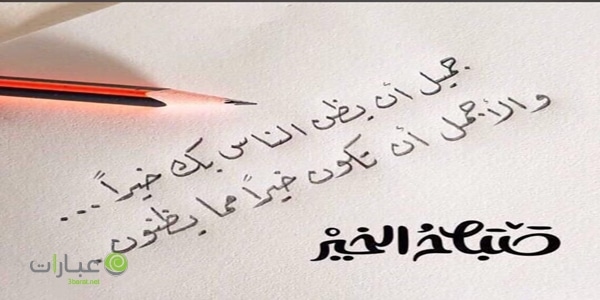 جميل أن يظن الناس بك خيراً...
والأجمل أن تكون خيراً مما يظنون.
صَبَاحُ الخَيْرْ
عبارات
3barat.net